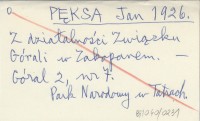 PĘKSA Jan 1926.
Z działalności Związku
Górali w Zakopanem. —
Góral 2, nr 7.
Park Narodowy w Tatrach